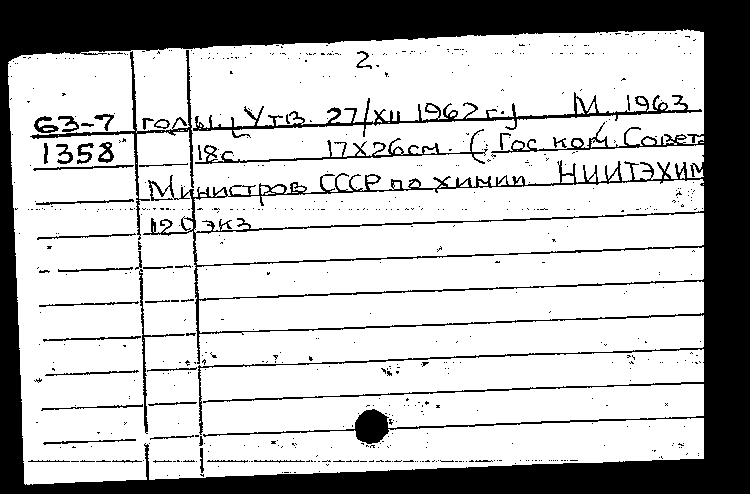 2.
63-7 годы. [Утв. 27/XII 1962 г.] М., 1963
1358 18с. 17X26см. (Гос. ком. Совета
Министров СССР по химии. НИИТЭХИМ
120 экз